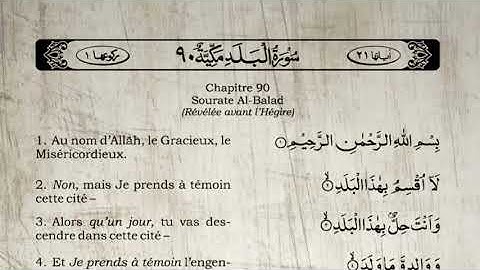 رکوعها ۱ سُوْرَةُ الْبَلَدِ مَكِّيَّةٌ ۹۰ اٰیاتها ۲۱
Chapitre 90
Sourate Al-Balad
(Révélée avant l’Hégire)
1. Au nom d’Allāh, le Gracieux, le
Miséricordieux.
بِسْمِ اللّٰهِ الرَّحْمٰنِ الرَّحِيْمِ ۝۱
2. Non, mais Je prends à témoin
cette cité –
لَاۤ اُقْسِمُ بِهٰذَا الْبَلَدِ ۝۲
3. Alors qu’un jour, tu vas des-
cendre dans cette cité –
وَاَنْتَ حِلٌّۢ بِهٰذَا الْبَلَدِ ۝۳
4. Et Je prends à témoin l’engen-
وَوَالِدٍ وَّمَا وَلَدَ ۝۴